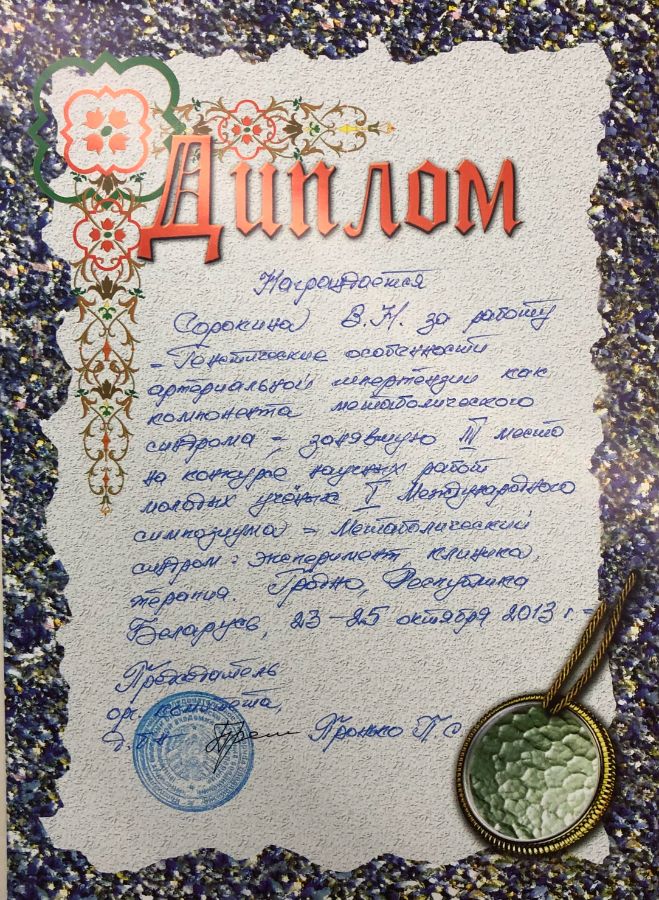 Диплом
Награждается
Сорокина В.Н. за работу
„Генетические особенности
артериальной гипертензии как
компонента метаболического
синдрома", занявшую III место
на конкурсе научных работ
молодых учёных I Международного
симпозиума „Метаболический
синдром: эксперимент, клиника,
терапия. Гродно, Республика
Беларусь, 23–25 октября 2013 г.
Председатель
орг. комитета,
Пронько П.С.